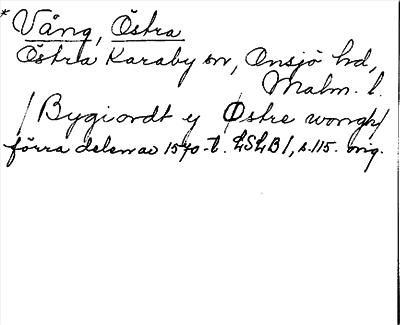 * Vång, Östra
Östra Karaby sn, Onsjö hd,
Malm. l.
/Bygiordt ej Østre wongh/
förra delen av 1570-t. LSLB1, s.115. orig.